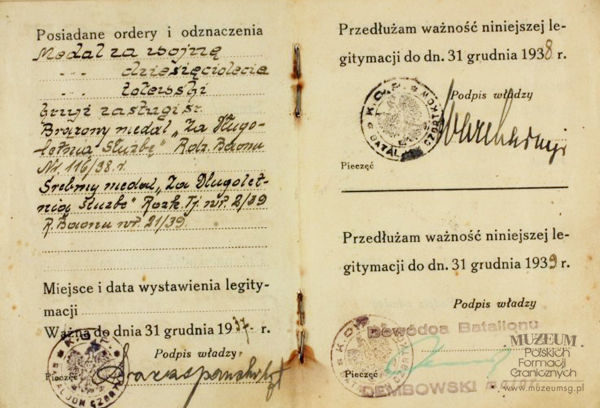 Posiadane ordery i odznaczenia
Medal za wojnę
-"- dziesięciolecia
-"- łotewski
krzyż zasługi sr.
Bronzowy medal „Za Długo-
letnią Służbę" Rozk. Baonu
Nr. 116/38.r.
Srebrny medal „Za Długolet-
nią Służbę" Rozk. Tj. nr. 2/39
R. Baonu nr. 21/39.
Miejsce i data wystawienia legity-
macji
Ważna do dnia 31 grudnia 1937 r.
Podpis władzy
Pieczęć
Przedłużam ważność niniejszej le-
gitymacji do dn. 31 grudnia 1938 r.
Podpis władzy
K.O.P.
BATALJON CZORTKÓW
Pieczęć
Przedłużam ważność niniejszej le-
gitymacji do dn. 31 grudnia 1939 r.
Podpis władzy
Dowódca Batalionu
Pieczęć
DEMBOWSKI major
MUZEUM
Polskich
Formacji
Granicznych
www.muzeumsg.pl